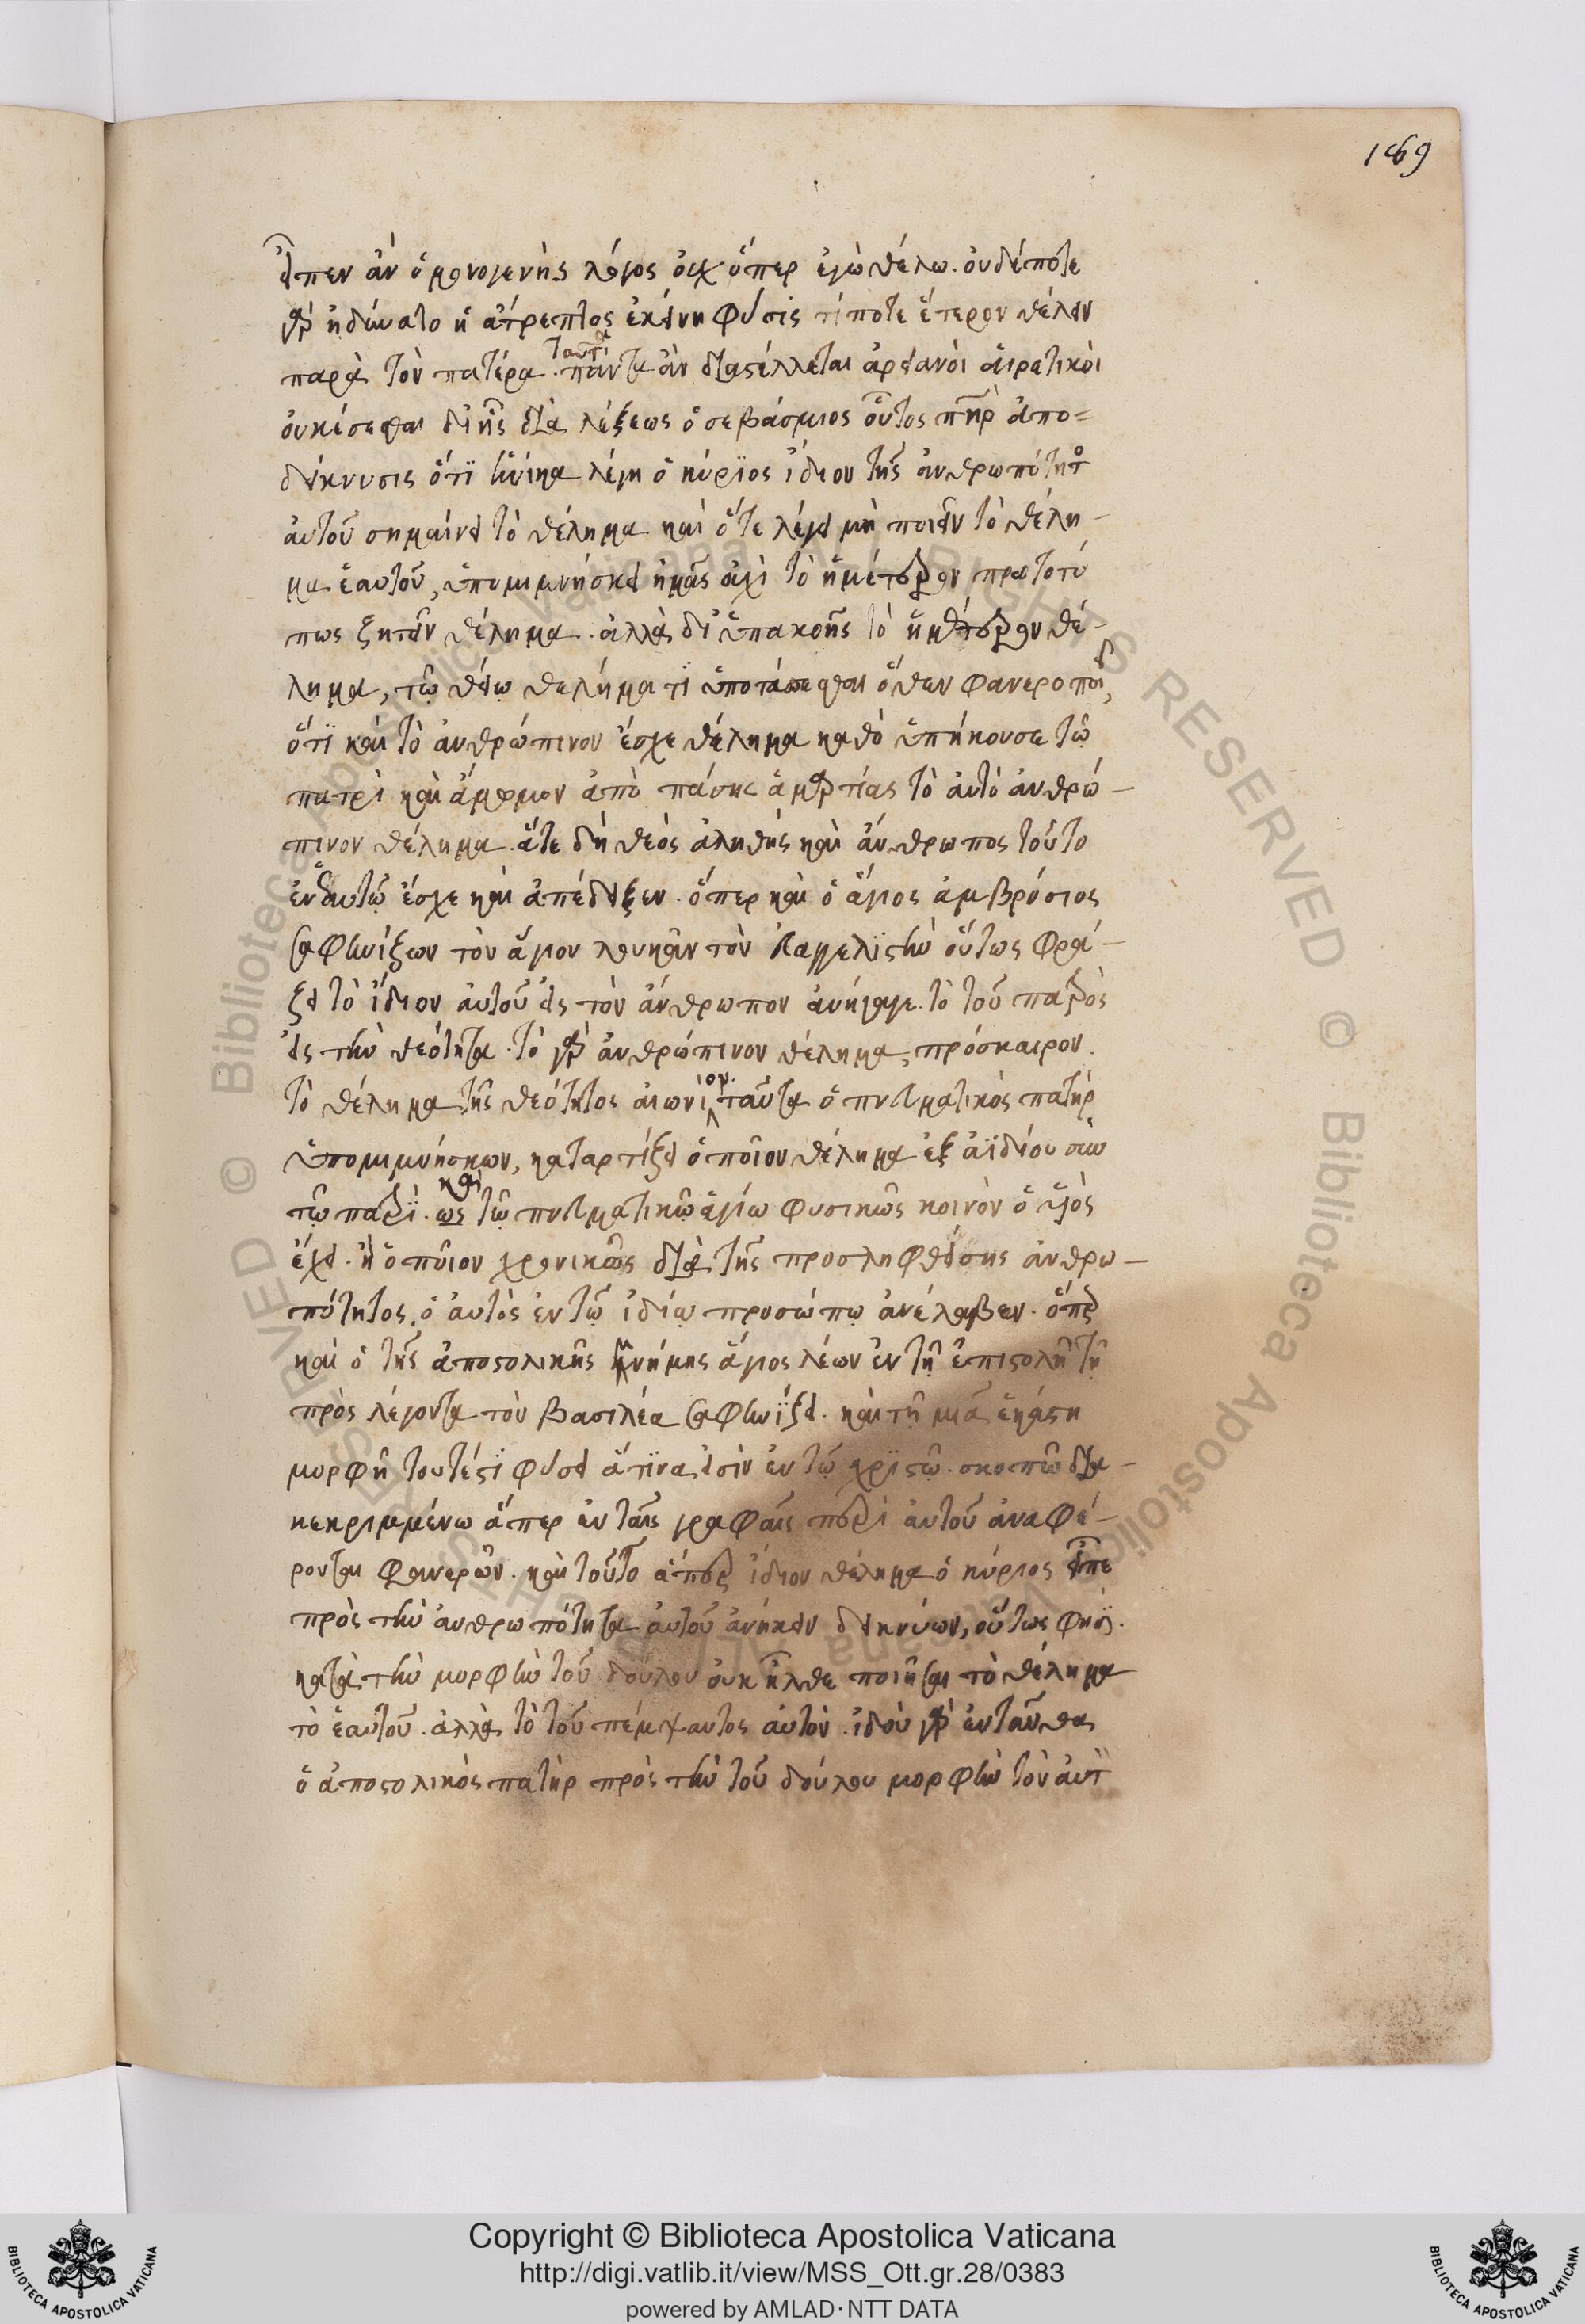 169
εἶπεν ἂν ὁ μονογενὴς λόγος οὐχ ὅπερ ἐγὼ θέλω. οὐδέποτε
γὰρ ἠδύνατο ἡ ἄτρεπτος ἐκείνη φύσις τί ποτε ἕτερον θέλειν
παρὰ τὸν πατέρα. ταῦτα πάντα ἂν διαστέλλεται ἀρειανοὶ αἱρετικοὶ
δι' ἧς διὰ λέξεως ὁ σεβάσμιος οὗτος πατὴρ ἀπο=
δείκνυσις ὅτι ἡνίκα λέγη ὁ κύριος ἴδιον τῆς ἀνθρωπότητος
αὐτοῦ σημαίνει τὸ θέλημα καὶ ὅτε λέγει μὴ ποιεῖν τὸ θέλη-
μα ἑαυτοῦ, ὑπομιμνήσκει ἡμᾶς οὐχὶ τὸ ἡμέτερον πρωτοτύ
πως ζητεῖν θέλημα. ἀλλὰ δι' ὑπακοῆς τὸ ἡμέτερον θέ-
λημα, τῷ θείῳ θελήματι ὑποτάσσεσθαι ὅθεν φανεροποιεῖ,
ὅτι καὶ τὸ ἀνθρώπινον ἔσχε θέλημα καθὸ ὑπήκουσε τῷ
πατρὶ καὶ ἄμωμον ἀπὸ πάσης ἁμαρτίας τὸ αὐτὸ ἀνθρώ-
πινον θέλημα. ἅτε δὴ θεὸς ἀληθὴς καὶ ἄνθρωπος τοῦτο
ἐν ἑαυτῷ ἔσχε καὶ ἀπέδειξεν. ὅπερ καὶ ὁ ἅγιος ἀμβρόσιος
σαφηνίζων τὸν ἅγιον λουκᾶν τὸν εὐαγγελιστὴν οὕτως φρά-
ζει τὸ ἴδιον αὐτοῦ εἰς τὸν ἄνθρωπον ἀνήγαγε. τὸ τοῦ πατρὸς
εἰς τὴν θεότητα. τὸ γὰρ ἀνθρώπινον θέλημα, πρόσκαιρον.
τὸ θέλημα τῆς θεότητος αἰώνιον. ταῦτα ὁ πνευματικὸς πατὴρ
ὑπομιμνήσκων, καταρτίζει ὁποῖον θέλημα ἐξ ἀϊδίου σὺν
τῷ πατρὶ. καὶ ὡς τῷ πνευματικῷ ἁγίω φυσικῶς κοινὸν ὁ υἱὸς
ἔχει. ἢ ὁποῖον χρονικῶς διὰ τῆς προσληφθείσης ἀνθρω-
πότητος. ὁ αὐτὸς ἐν τῷ ἰδίῳ προσώπῳ ἀνέλαβεν. ὅπερ
καὶ ὁ τῆς ἀποστολικῆς μνήμης ἅγιος λέων ἐν τῇ ἐπιστολῇ τῇ
πρὸς λέγοντα τὸν βασιλέα σαφηνίζει. καὶ τῇ μιᾷ ἑκάστη
μορφῇ τουτέστι φύσει ἅτινα εἰσὶν ἐν τῷ χριστῷ. σκοπῷ δια-
κεκριμμένω ἅπερ ἐν ταῖς γραφαῖς περὶ αὐτοῦ ἀναφέ-
ρονται φανερῶν. καὶ τοῦτο ἅπερ ἴδιον θέλημα ὁ κύριος εἶπε
πρὸς τὴν ἀνθρωπότητα αὐτοῦ ἀνήκειν δεικνύων, οὕτως φησί.
κατὰ τὴν μορφὴν τοῦ δούλου οὐκ ἦλθε ποιῆσαι τὸ θέλημα
τὸ ἑαυτοῦ. ἀλλὰ τὸ τοῦ πέμψαντος αὐτόν. ἰδοὺ γὰρ ἐνταῦθα
ὁ ἀποστολικὸς πατὴρ πρὸς τὴν τοῦ δούλου μορφὴν τὸν αὐτ
Copyright © Biblioteca Apostolica Vaticana
http://digi.vatlib.it/view/MSS_Ott.gr.28/0383
powered by AMLAD·NTT DATA
BIBLIOTECA APOSTOLICA VATICANA
BIBLIOTECA APOSTOLICA VATICANA
© Biblioteca Apostolica Vaticana ALL RIGHTS RESERVED © Biblioteca Apostolica Vaticana ALL RIGHTS RESERVED